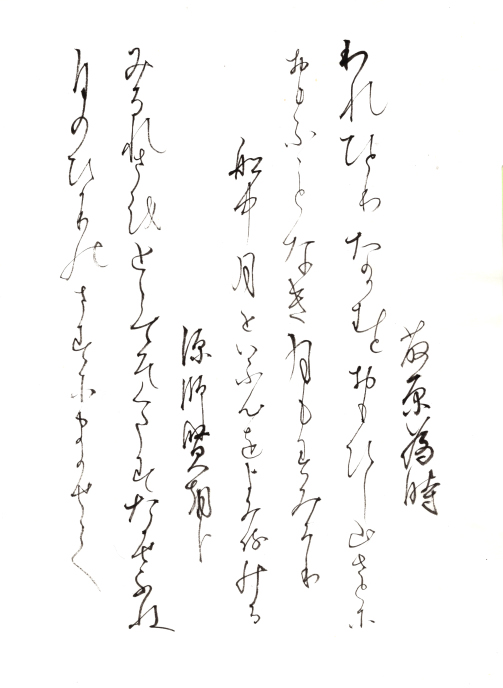 藤原為時
われひとりなかむとおもひし山さとに
おもふことなき月もすみけり
船中月といふ心をよみ侍ける
源師賢朝臣
みなれさをとらてそくたすたかせふね
月のひかりのさすにまかせて